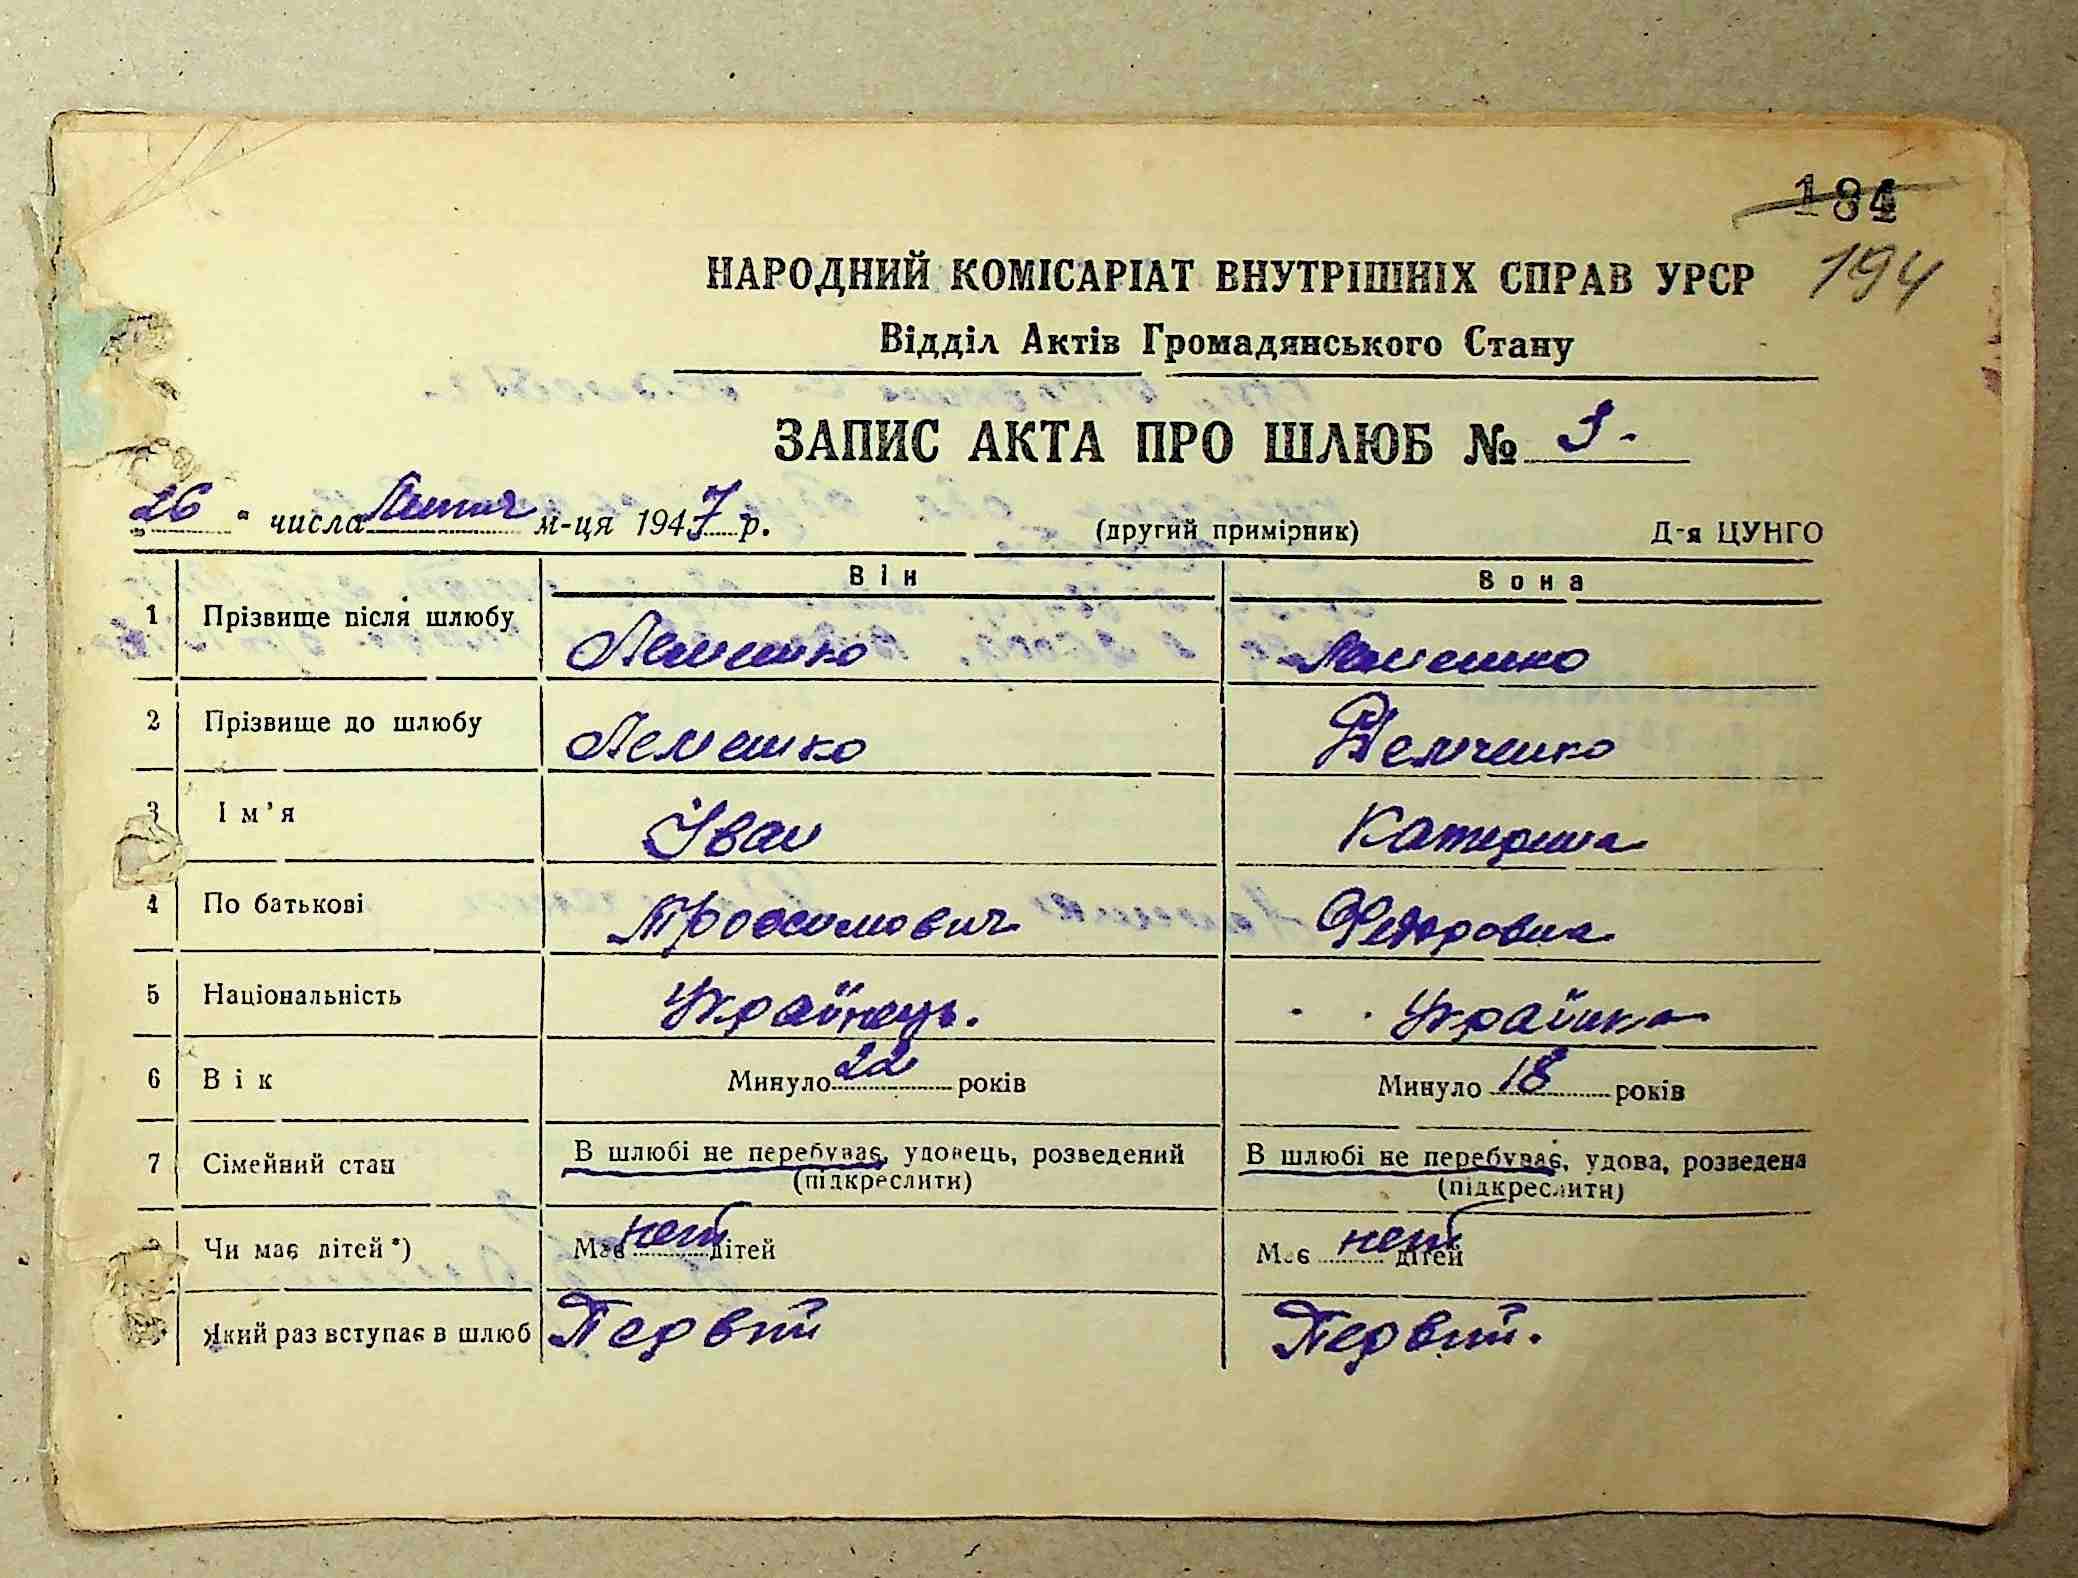 184
194
НАРОДНИЙ КОМІСАРІАТ ВНУТРІШНІХ СПРАВ УРСР
Відділ Актів Громадянського Стану
ЗАПИС АКТА ПРО ШЛЮБ № 3.
„26“ числа м-ця 1947 р. (другий примірник) Д-я ЦУНГО
Він Вона
1 Прізвище після шлюбу Лемешко Лемешко
2 Прізвище до шлюбу Лемешко Демченко
3 Ім'я Іван Катерина
4 По батькові Федоровна
5 Національність Українець. Українка
6 Вік Минуло 22 років Минуло 18 років
7 Сімейний стан В шлюбі не перебуває, удовець, розведений В шлюбі не перебуває, удова, розведена
(підкреслити) (підкреслити)
Чи має дітей*) Має нет дітей Має нет дітей
Який раз вступає в шлюб Первий Первий.